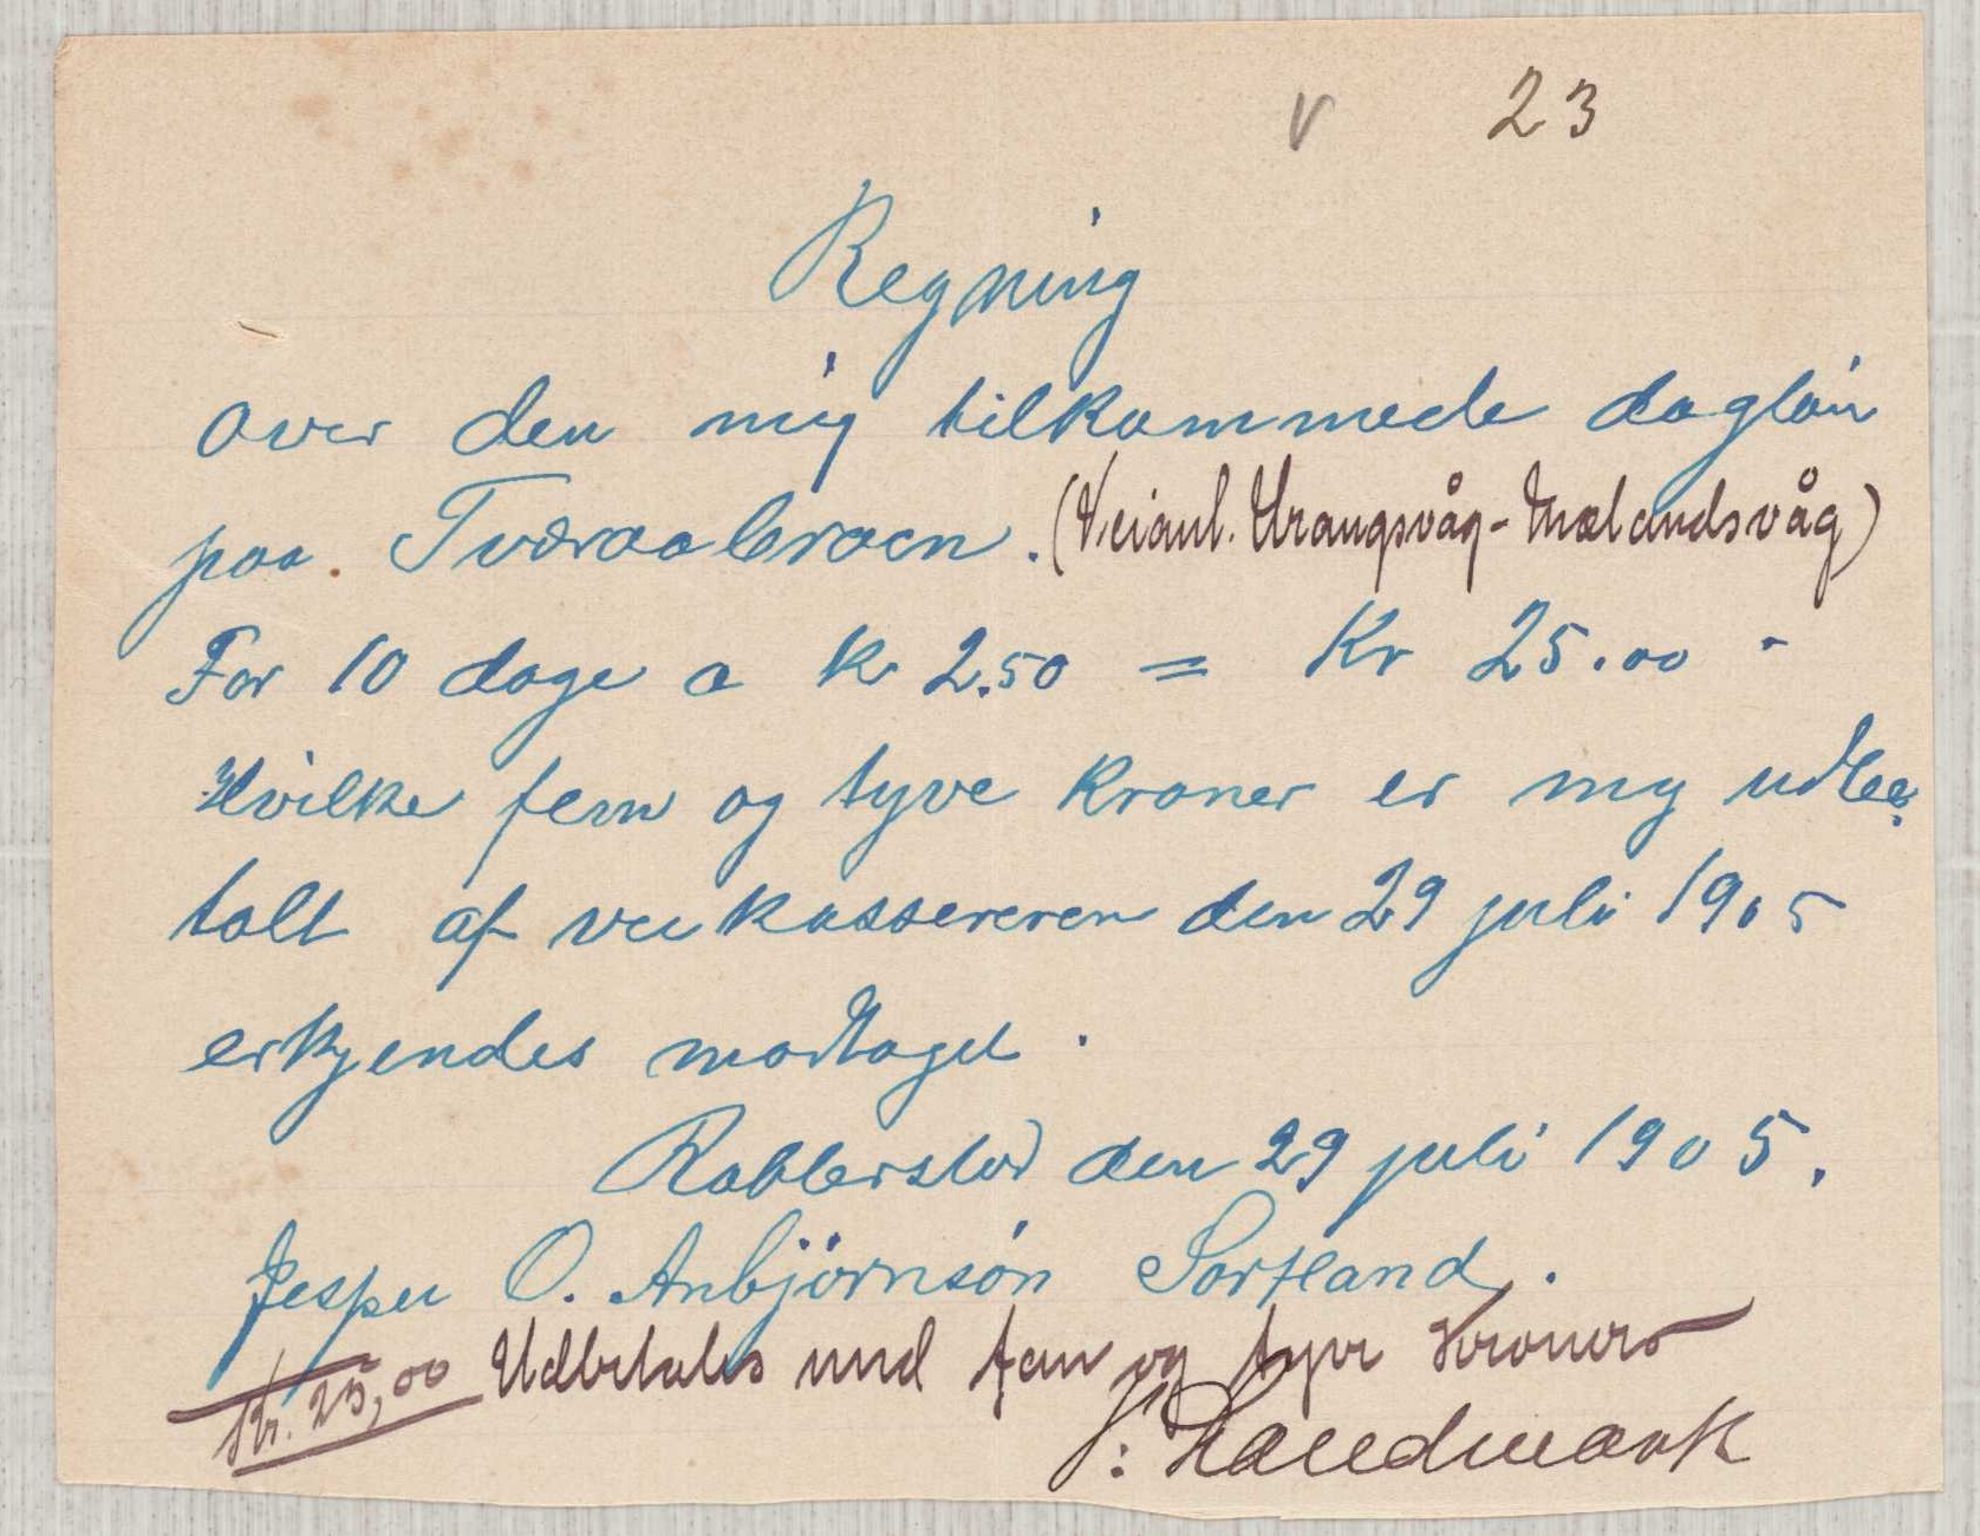 V 23
Regning
over den mig tilkommede dagløn
paa. Tværaabroen. (Veianl. Urangsvåg - Mælandsvåg)
For 10 dage a kr 2.50 = Kr 25.00 -
Hvilke fem og tyve Kroner er mig udbe-
talt af veikassereren den 29 juli 1905
erkjendes modtaget.
Rabberstad den 29 juli 1905.
Jesper O. Anbjørnsøn Sortland.
Kr. 25,00 Udbetales med fem og tyve Kroner
J: Handmark